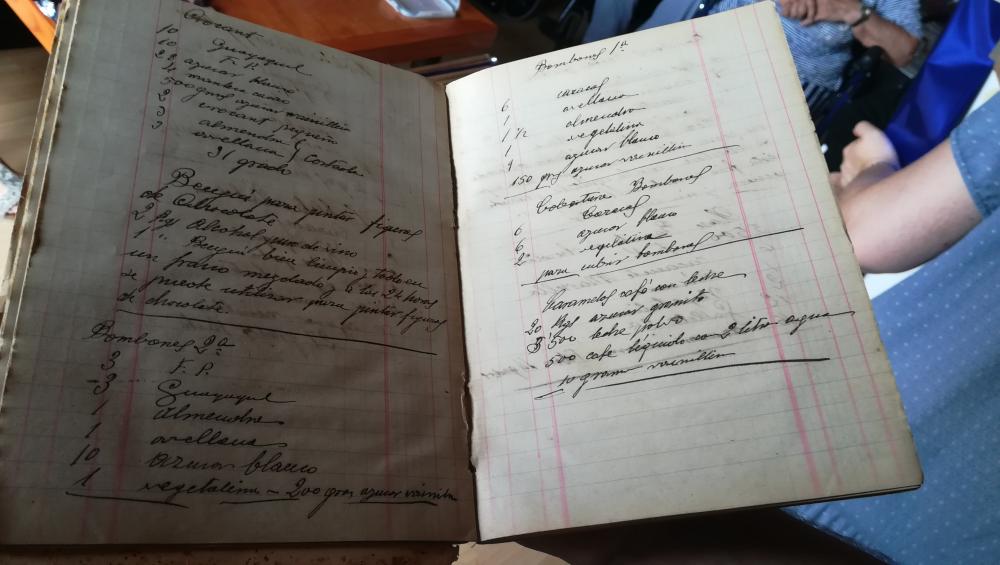 10 Guayaquil
10 F. P.
azucar blanco
manteca cacao
500 grs azucar vainillin
almendra
avellana } tostado
31 grado
Benjui para pintar figuras
de Chocolate
2 Kg Alcohol puro de vino
1 " Benjui bien limpio, todo en
un frasco mezclado, a las 24 horas
se puede utilizar para pintar figuras
de chocolate
Bombones 2ª
3 F. P.
3 Guayaquil
1 Almendra
1 avellana
10 azucar blanco
1 vegetalina - 200 grs azucar vainillin
Bombones 1ª
6 caracas
1 avellana
1 1/2 almendra
1 vegetalina
1 azucar blanco
150 grs azucar vainillin
Cobertura Bombones
6 Caracas
6 azucar blanco
2 vegetalina
para cubrir bombones
Caramelos café con leche
20 Kgs azucar granito
3'500 leche polvo
500 cafe liquido con 2 litros agua
10 grams vainillin